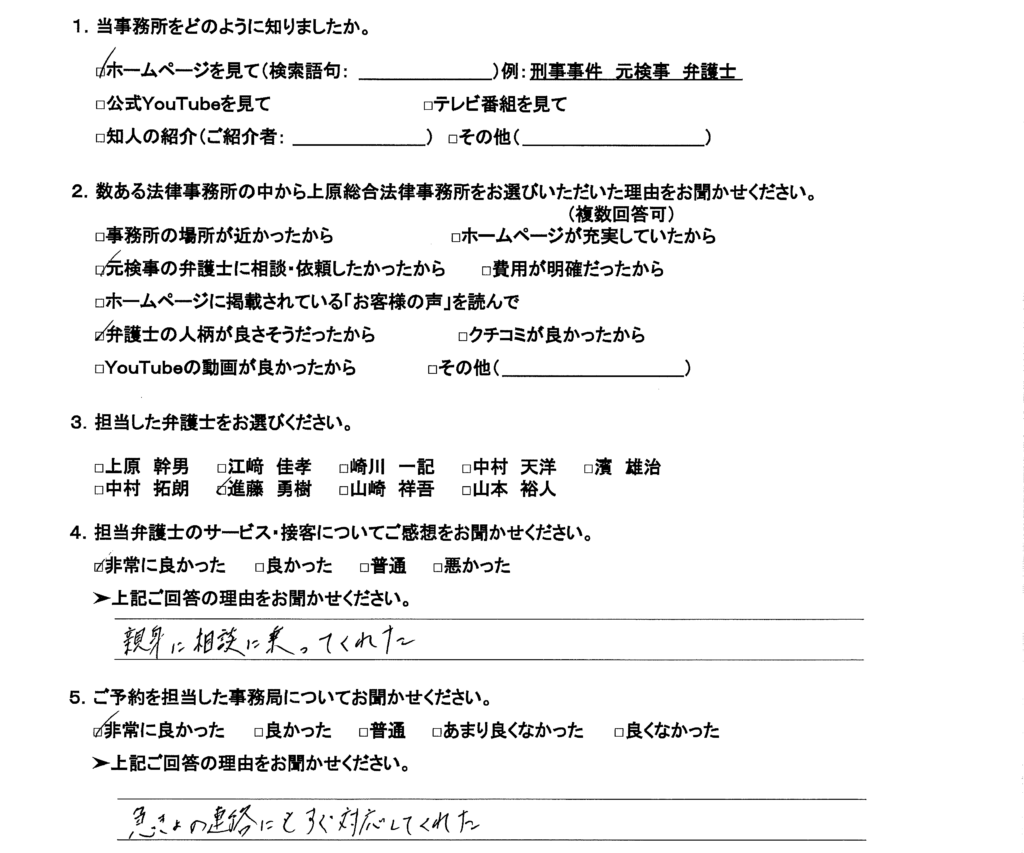 1. 当事務所をどのように知りましたか。
☑ホームページを見て(検索語句: ____________)例:刑事事件 元検事 弁護士
□公式YouTubeを見て □テレビ番組を見て
□知人の紹介(ご紹介者: ____________) □その他(________________)
2. 数ある法律事務所の中から上原総合法律事務所をお選びいただいた理由をお聞かせください。
(複数回答可)
□事務所の場所が近かったから □ホームページが充実していたから
☑元検事の弁護士に相談・依頼したかったから □費用が明確だったから
□ホームページに掲載されている「お客様の声」を読んで
☑弁護士の人柄が良さそうだったから □クチコミが良かったから
□YouTubeの動画が良かったから □その他(________________)
3. 担当した弁護士をお選びください。
□上原 幹男 □江﨑 佳孝 □崎川 一記 □中村 天洋 □濱 雄治
□中村 拓朗 ☑進藤 勇樹 □山崎 祥吾 □山本 裕人
4. 担当弁護士のサービス・接客についてご感想をお聞かせください。
☑非常に良かった □良かった □普通 □悪かった
➤上記ご回答の理由をお聞かせください。
親身に相談に乗ってくれた
5. ご予約を担当した事務局についてお聞かせください。
☑非常に良かった □良かった □普通 □あまり良くなかった □良くなかった
➤上記ご回答の理由をお聞かせください。
急きょの連絡にもすぐ対応してくれた